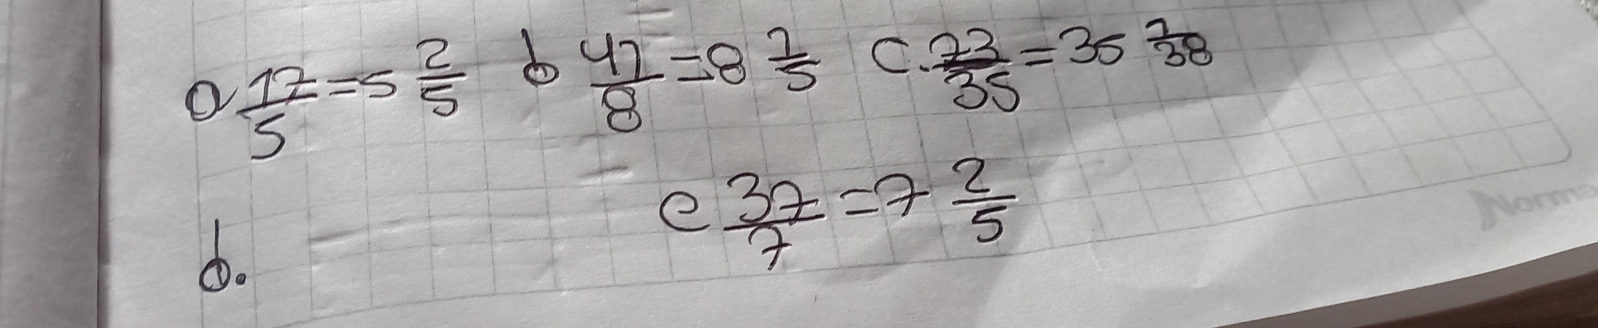 a 17/5 = 5 2/5 b 41/8 = 8 1/5 c. 73/35 = 35 7/38
e 37/7 = 7 2/5
d.
Norma